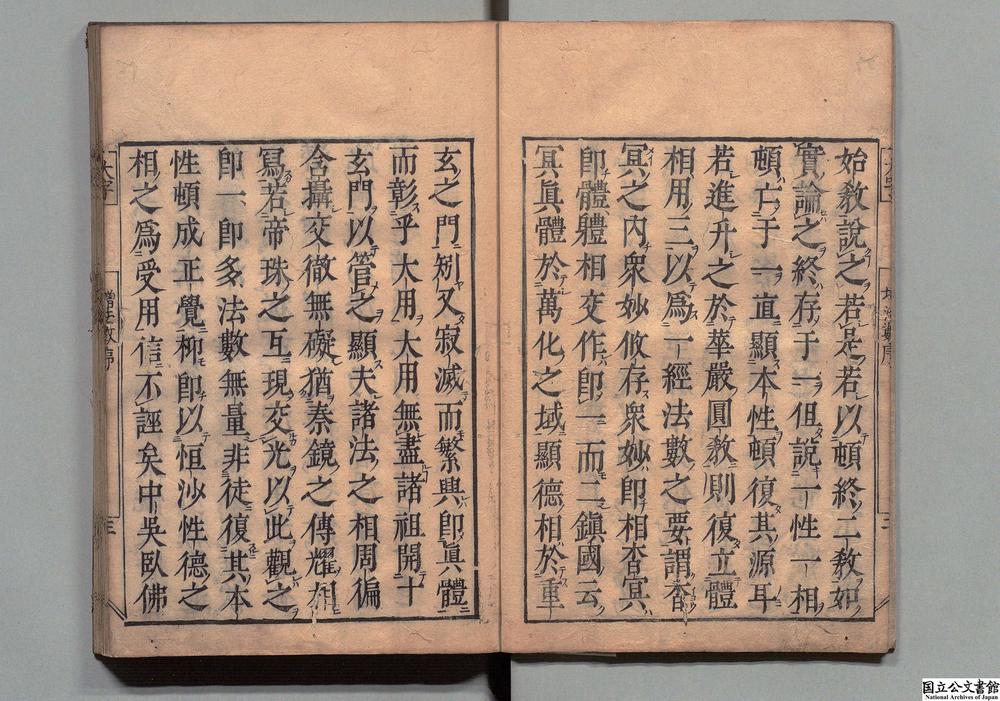 始教說之若是若以頓終二教如
實論之終存于一但說一性一相
頓亡于一直顯本性頓復其源耳
若進升之於華嚴圓教則復立體
相用三以爲一經法數之要謂杳
冥之内衆妙攸存衆妙即相杳冥
即體體相交作即一而二鎮國云
冥眞體於萬化之域顯德相於重
玄之門矧又寂滅而繁興即眞體
而彰乎大用大用無盡諸祖開十
玄門以管之顯夫諸法之相周徧
含攝交徹無礙猶秦鏡之傳耀相
寫若帝珠之互現交光以此觀之
即一即多法數無量非徒復其本
性頓成正覺柳即以恒沙性德之
相之爲受用信不誣矣中吳臥佛
国立公文書館
National Archives of Japan